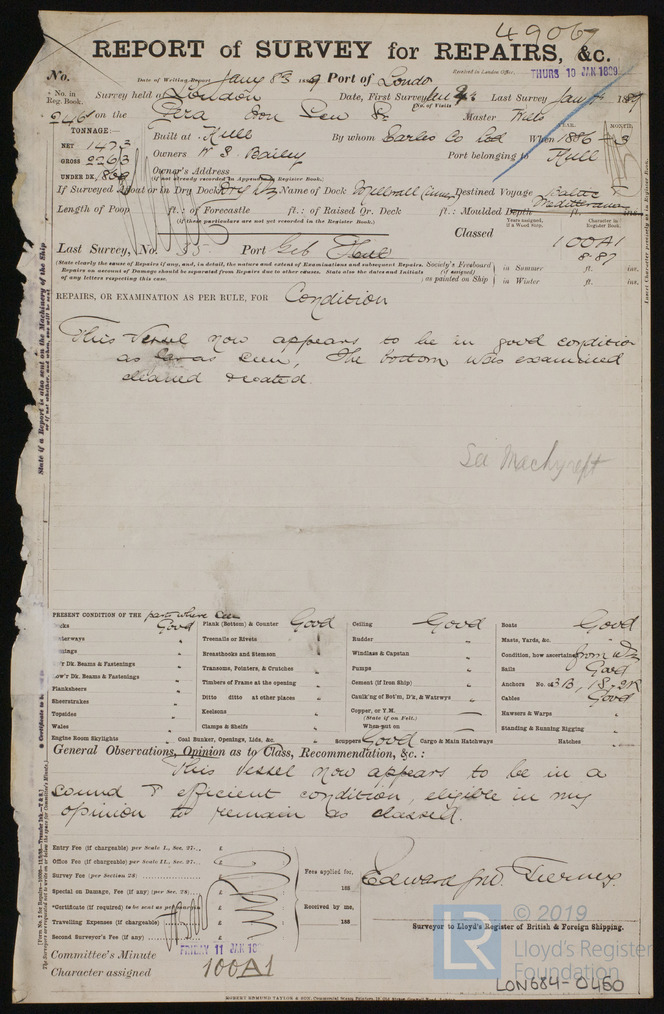 49067
REPORT of SURVEY for REPAIRS, &c.
No. Date of Writing Report Jany 8th 1889 Port of London Received in London Office, THURS 10 JAN 1889
No. in Reg. Book. Survey held at London Date, First Survey Last Survey 1889
(No. of Visits
246 on the Iron Screw
TONNAGE: Master Wells
NET 1473 Built at Hull By whom Earles Co Ld When 1886 - 3 YEAR. MONTH.
GROSS 2263 Owners W S. Bailey Port belonging to Hull
UNDER DK. Owner's Address
(if not already recorded in Appendix Register Book.)
If Surveyed Afloat or in Dry Dock Dry Dk Name of Dock Millwall Destined Voyage Baltic Mediterranean
Length of Poop ft.: of Forecastle ft.: of Raised Qr. Deck ft.: Moulded Depth ft. ins.
(If these particulars are not yet recorded in the Register Book.)
Years assigned, if a Wood Ship. Character in Register Book.
Classed 100A1
8-87
Last Survey, No. Port Hull
(State clearly the cause of Repairs if any, and, in detail, the nature and extent of Examinations and subsequent Repairs.
Repairs on account of Damage should be separated from Repairs due to other causes. State also the dates and Initials
of any letters respecting this case.
Society's Freeboard (if assigned) as painted on Ship in Summer ft. ins.
in Winter ft. ins.
REPAIRS, OR EXAMINATION AS PER RULE, FOR Condition
This Vessel now appears to be in good condition
as far as seen, The bottom was examined
cleaned & coated.
See Machy rept
State if a Report is also sent on the Machinery of the Ship
PRESENT CONDITION OF THE parts where seen
Decks Good Plank (Bottom) & Counter Good Ceiling Good Boats Good
Waterways " Treenails or Rivets " Rudder " Masts, Yards, &c. "
Breasthooks and Stemson Windlass & Capstan Condition, how ascertained from Dk
Up'r Dk. Beams & Fastenings Transoms, Pointers, & Crutches Pumps Sails Good
Low'r Dk. Beams & Fastenings Timbers of Frame at the opening Cement (if Iron Ship) Anchors No. of 3B, 1S, 2K
Planksheers Ditto ditto at other places Caulk'ng of Bot'm, D'k, & Watrwys Cables Good
Sheerstrakes Keelsons Copper, or Y.M. Hawsers & Warps
Topsides Clamps & Shelfs (State if on Felt.) Standing & Running Rigging
Wales When put on
Engine Room Skylights Coal Bunker, Openings, Lids, &c. Scuppers Good Cargo & Main Hatchways Hatches
General Observations, Opinion as to Class, Recommendation, &c. :
This Vessel now appears to be in a
sound & efficient condition, eligible in my
opinion to remain as classed.
Entry Fee (if chargeable) per Scale I., Sec. 27.. £
Office Fee (if chargeable) per Scale II., Sec. 27.. £
Survey Fee (per Section 28) £
Special on Damage, Fee (if any) (per Sec. 28) £
*Certificate (if required) to be sent as per margin
Travelling Expenses (if chargeable) £
Second Surveyor's Fee (if any) £
Fees applied for, 188
Received by me, 188
Surveyor to Lloyd's Register of British & Foreign Shipping.
Committee's Minute FRIDAY 11 JAN 188
Character assigned 100A1
ROBERT EDMUND TAYLOR & SON,
LR
© 2019
Lloyd's Register
Foundation
LON684-0460